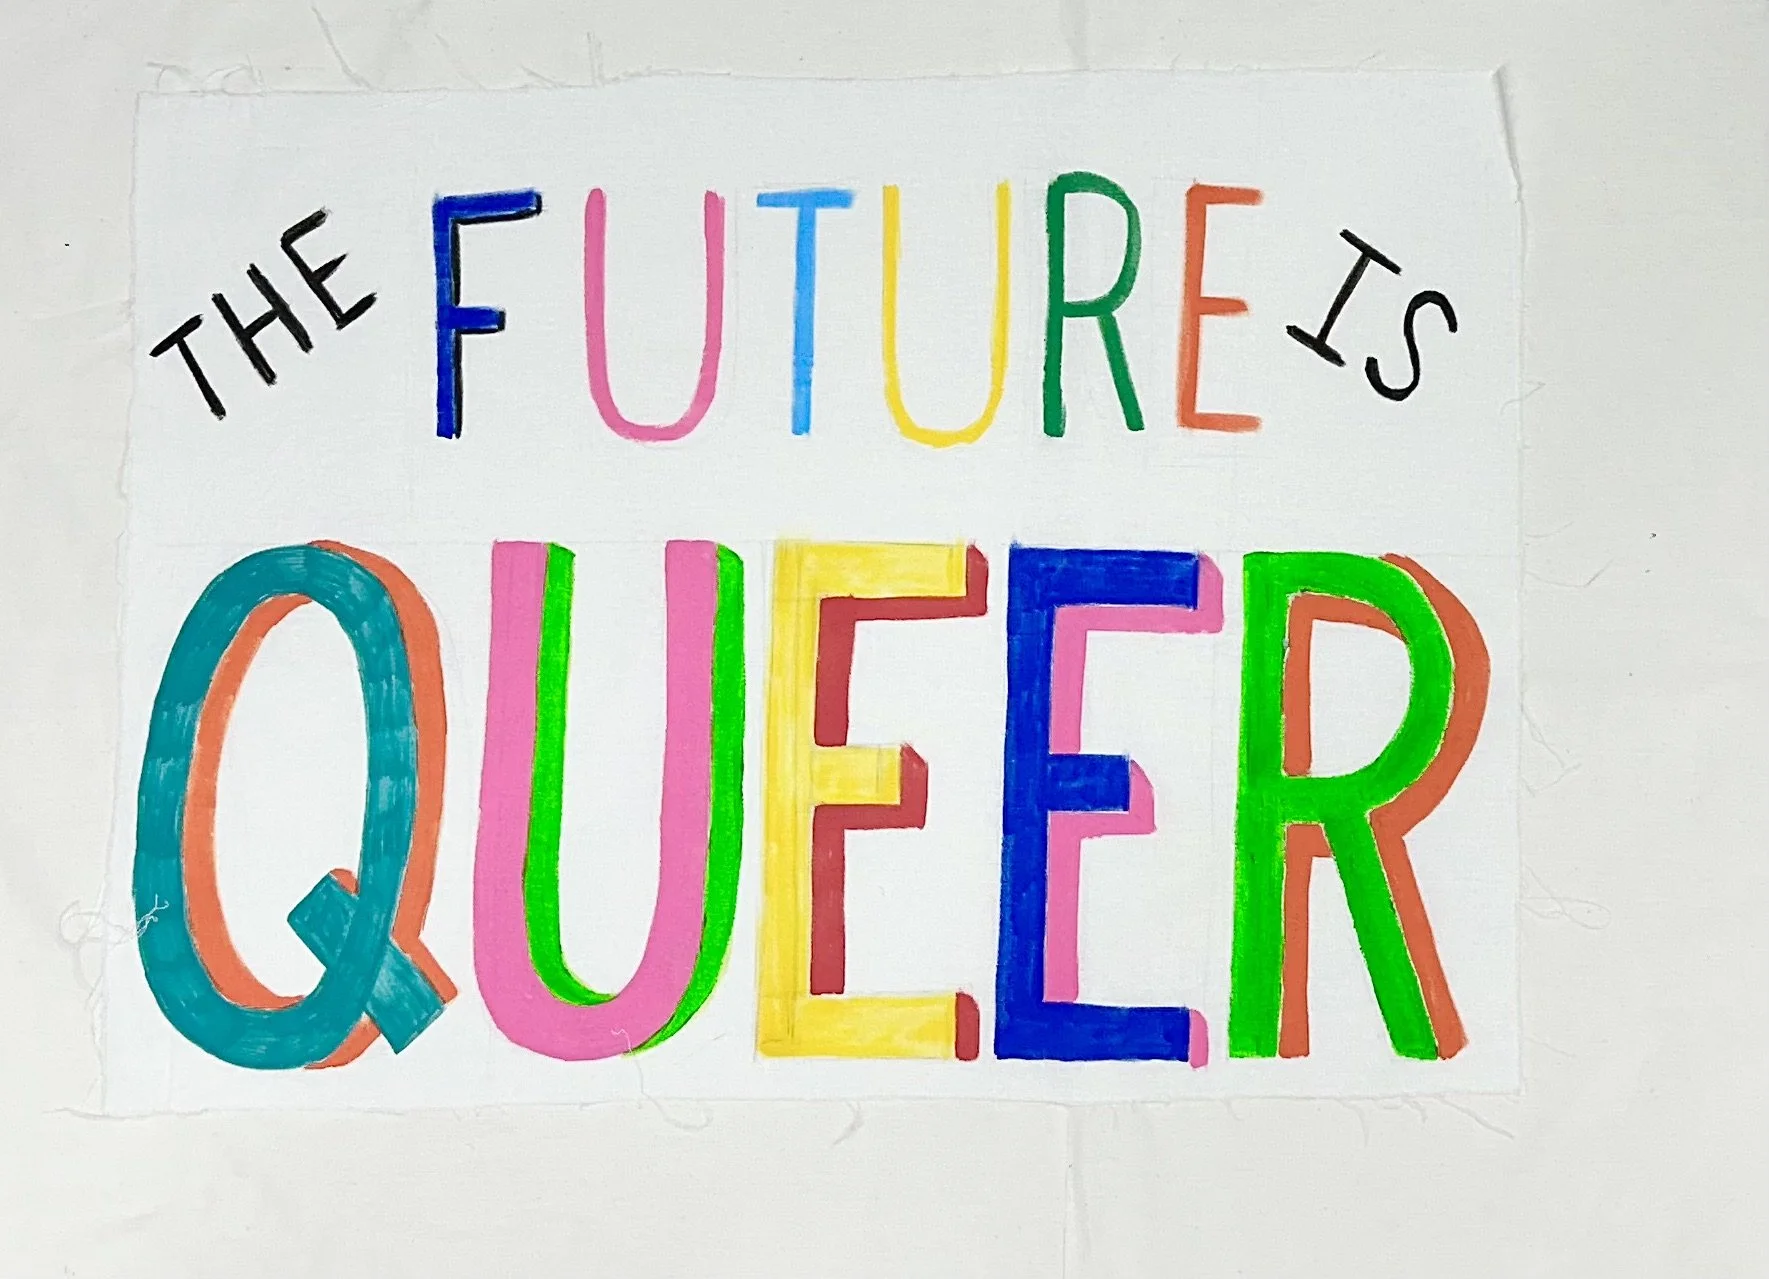 THE FUTURE IS
QUEER